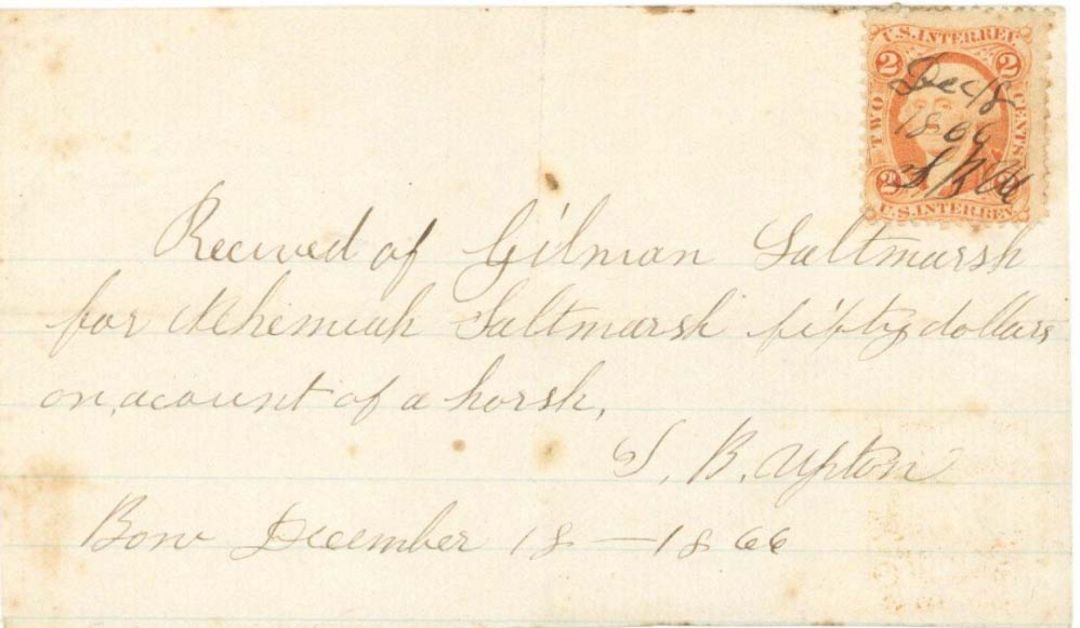 U.S. INTER. REV.
2 2
TWO CENTS
Dec 18
1866
S B U
2 2
U.S. INTER. REV.
Recived of Gilman Saltmarsh
for Nehemiah Saltmarsh fifty dollars
on, acount of a horsh,
S. B. Upton
Bow December 18 — 1866